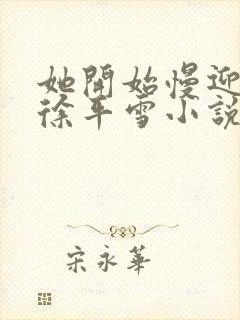 她開始慢迎
徐年雪小說
宋永華